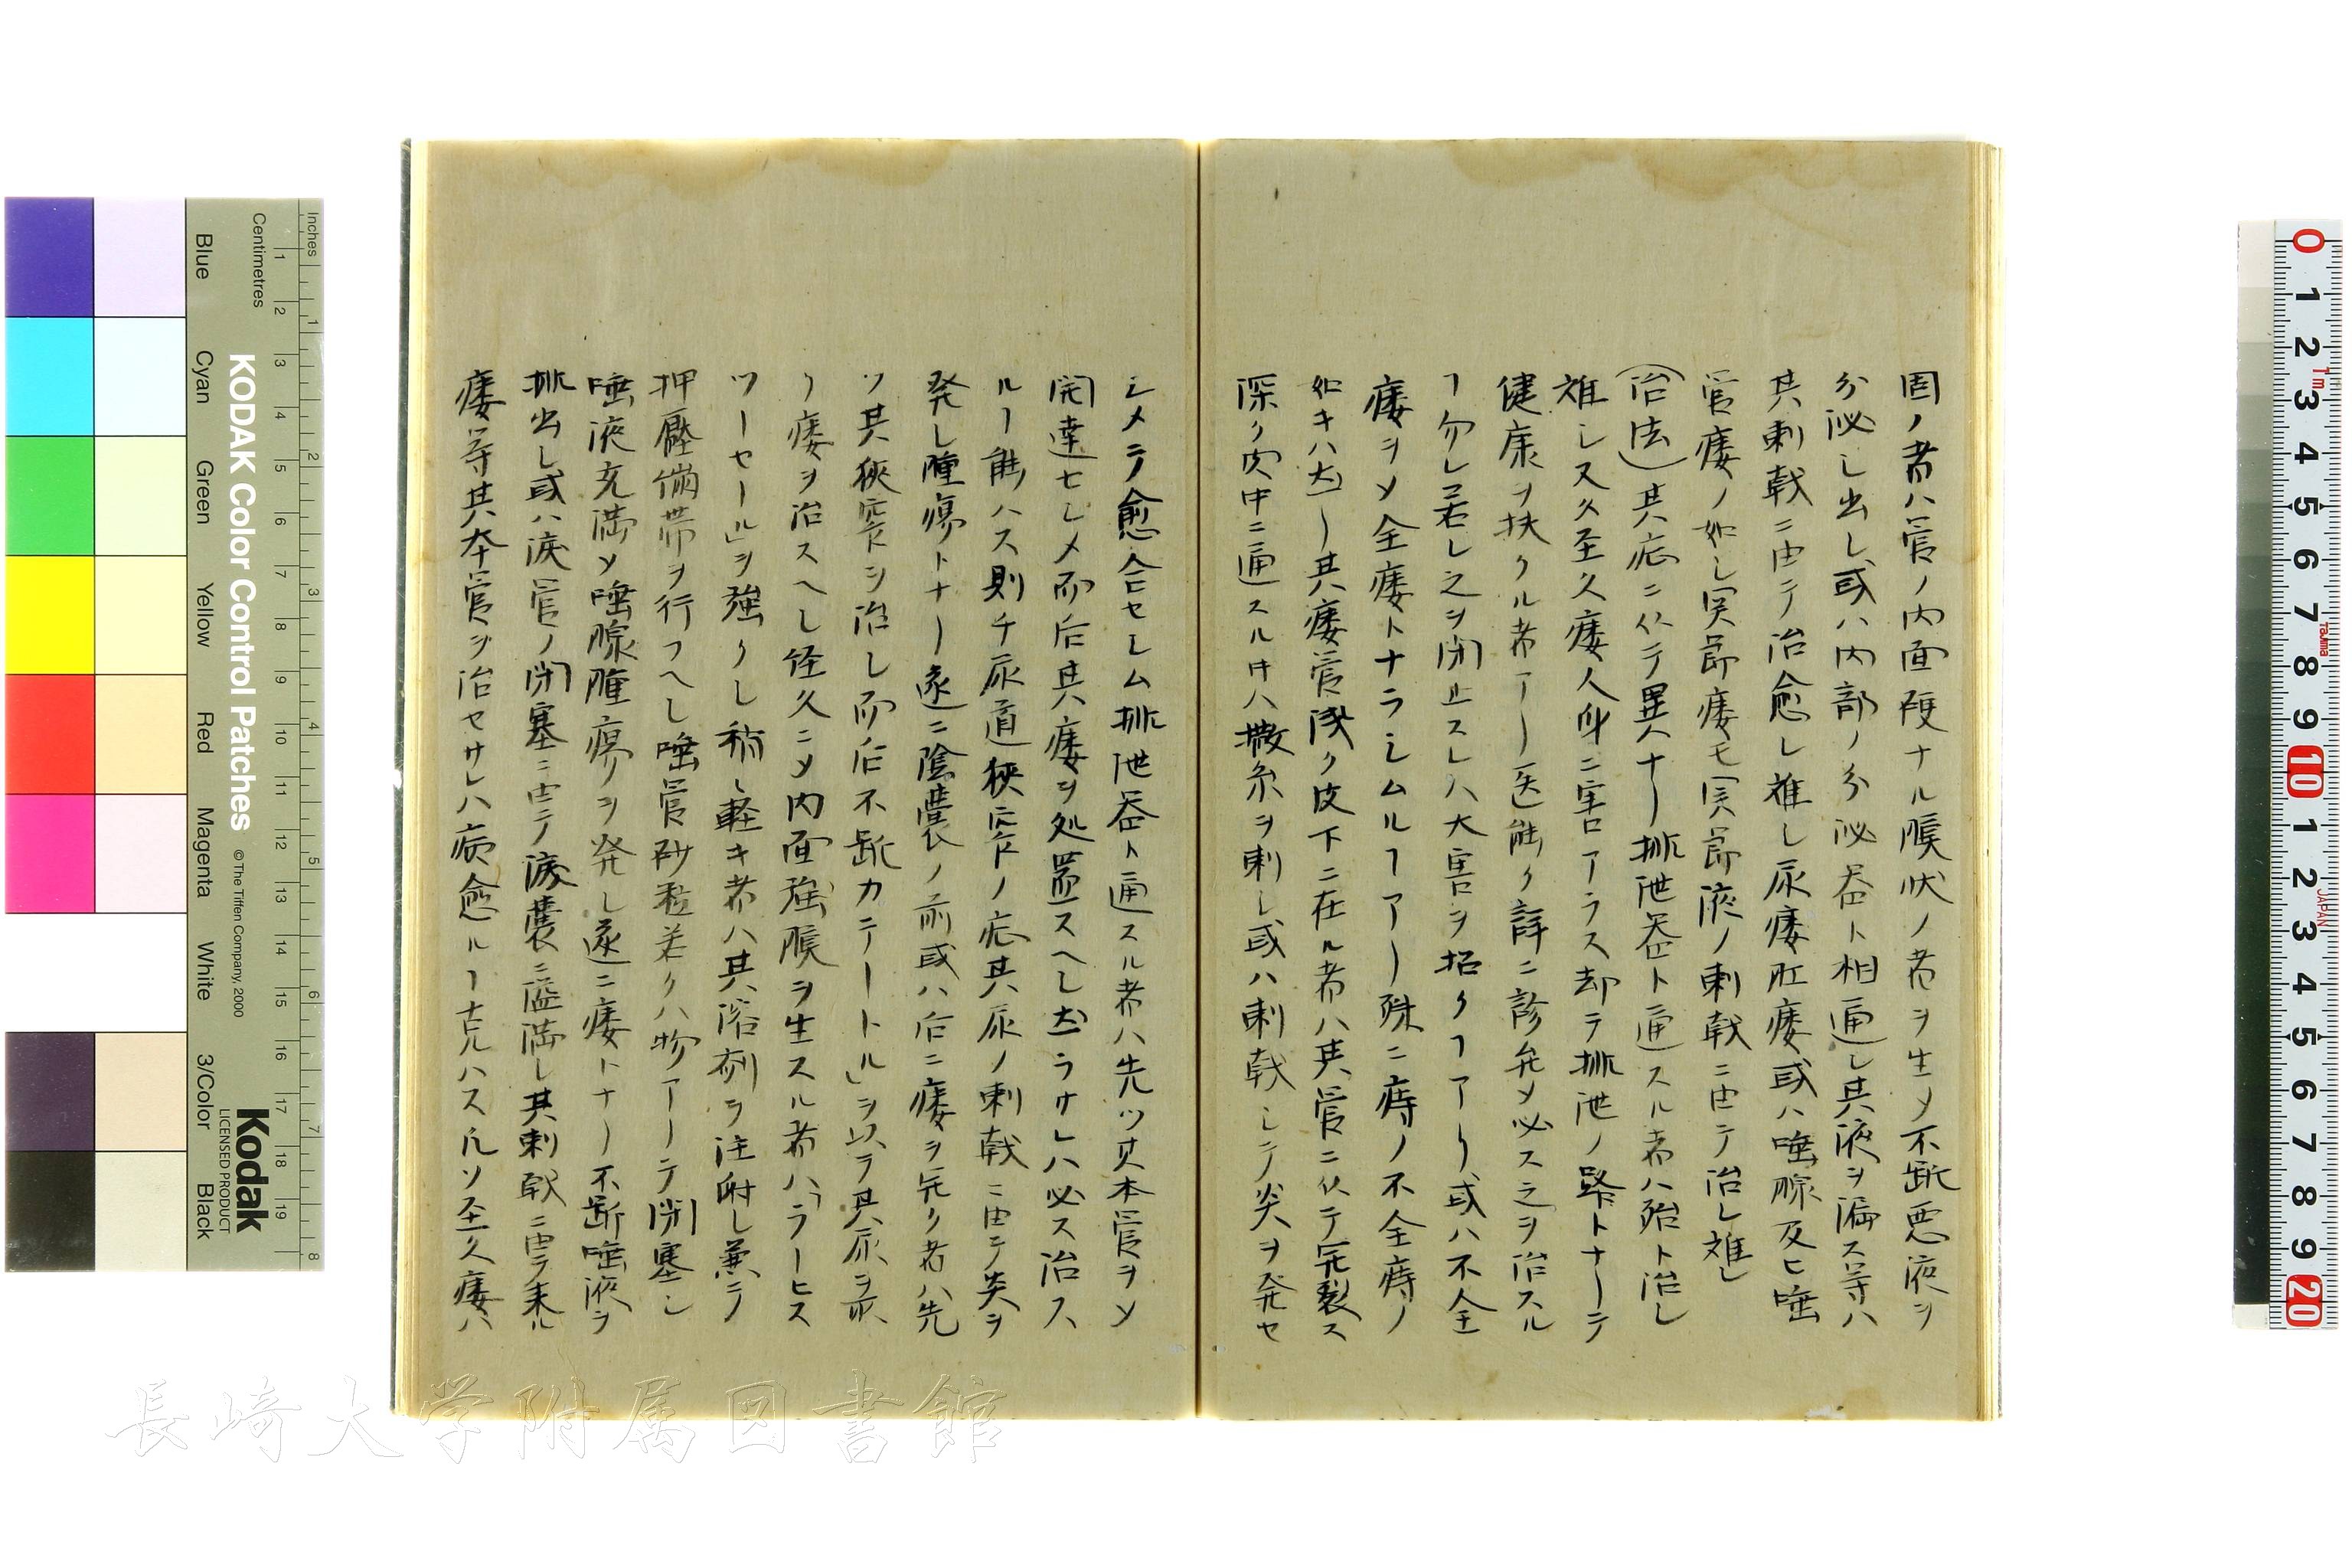 固ノ者ハ管ノ内面硬ナル膜状ノ者ヲ生メ不断悪液ヲ
分泌し出し或ハ内部ノ分泌器ト相通し其液ヲ漏ス等ハ
其刺戟ニ由テ治愈し難し尿瘻肛瘻或ハ唾腺及ヒ唾
管瘻ノ如し関節瘻モ関節液ノ刺戟ニ由テ治し難し
(治法)其症ニ从テ異ナリ排泄器ト通スル者ハ殆ト治し
難し又久至久瘻人身ニ害アラス却テ排泄ノ路トナリテ
健康ヲ扶クル者アリ医能ク詳ニ診弁メ必ス之ヲ治スル
ヿ勿レ若し之ヲ閉止スレハ大害ヲ招クヿアリ或ハ不全
瘻ヲメ全瘻トナラシムルヿアリ殊ニ痔ノ不全痔ノ
如キハ然リ其瘻管浅ク皮下ニ在ル者ハ其管ニ从テ切裂ス
深ク肉中ニ通スルキハ撒糸ヲ刺し或ハ刺戟シテ炎ヲ発セ
シメテ愈合セしム排泄器ト通スル者ハ先ツ其本管ヲメ
開達セしメ而后其瘻ヲ処置スヘし然ラサレハ必ス治ス
ルヿ能ハス則チ尿道狭窄ノ症其尿ノ刺戟ニ由テ炎ヲ
発し腫瘍トナリ遂ニ陰嚢ノ前或ハ后ニ瘻ヲ穿ク者ハ先
ツ其狭窄ヲ治し而后不断カテートル」ヲ以テ其尿ヲ取
リ瘻ヲ治スヘし経久ニメ内面強膜ヲ生スル者ハ「ラーヒス
ツーセール」ヲ強クし稍し軽キ者ハ其溶剤ヲ注射し兼テ
押壓繃帯ヲ行フヘし唾管砂粒若クハ物アリテ閉塞し
唾液充満メ唾腺腫瘍ノヲ発し遂ニ瘻トナリ不断唾液ヲ
排出し或ハ涙管ノ閉塞ニ由テ涙嚢ニ溢満し其刺戟ニ由テ来ル
瘻等其本管ヲ治セサレハ病愈ルヿ克ハス凡ソ至久瘻ハ
Inches
Centimetres
KODAK Color Control Patches
© The Tiffen Company, 2000
Kodak
LICENSED PRODUCT
Blue
Cyan
Green
Yellow
Red
Magenta
White
3/Color
Black
長崎大学附属図書館